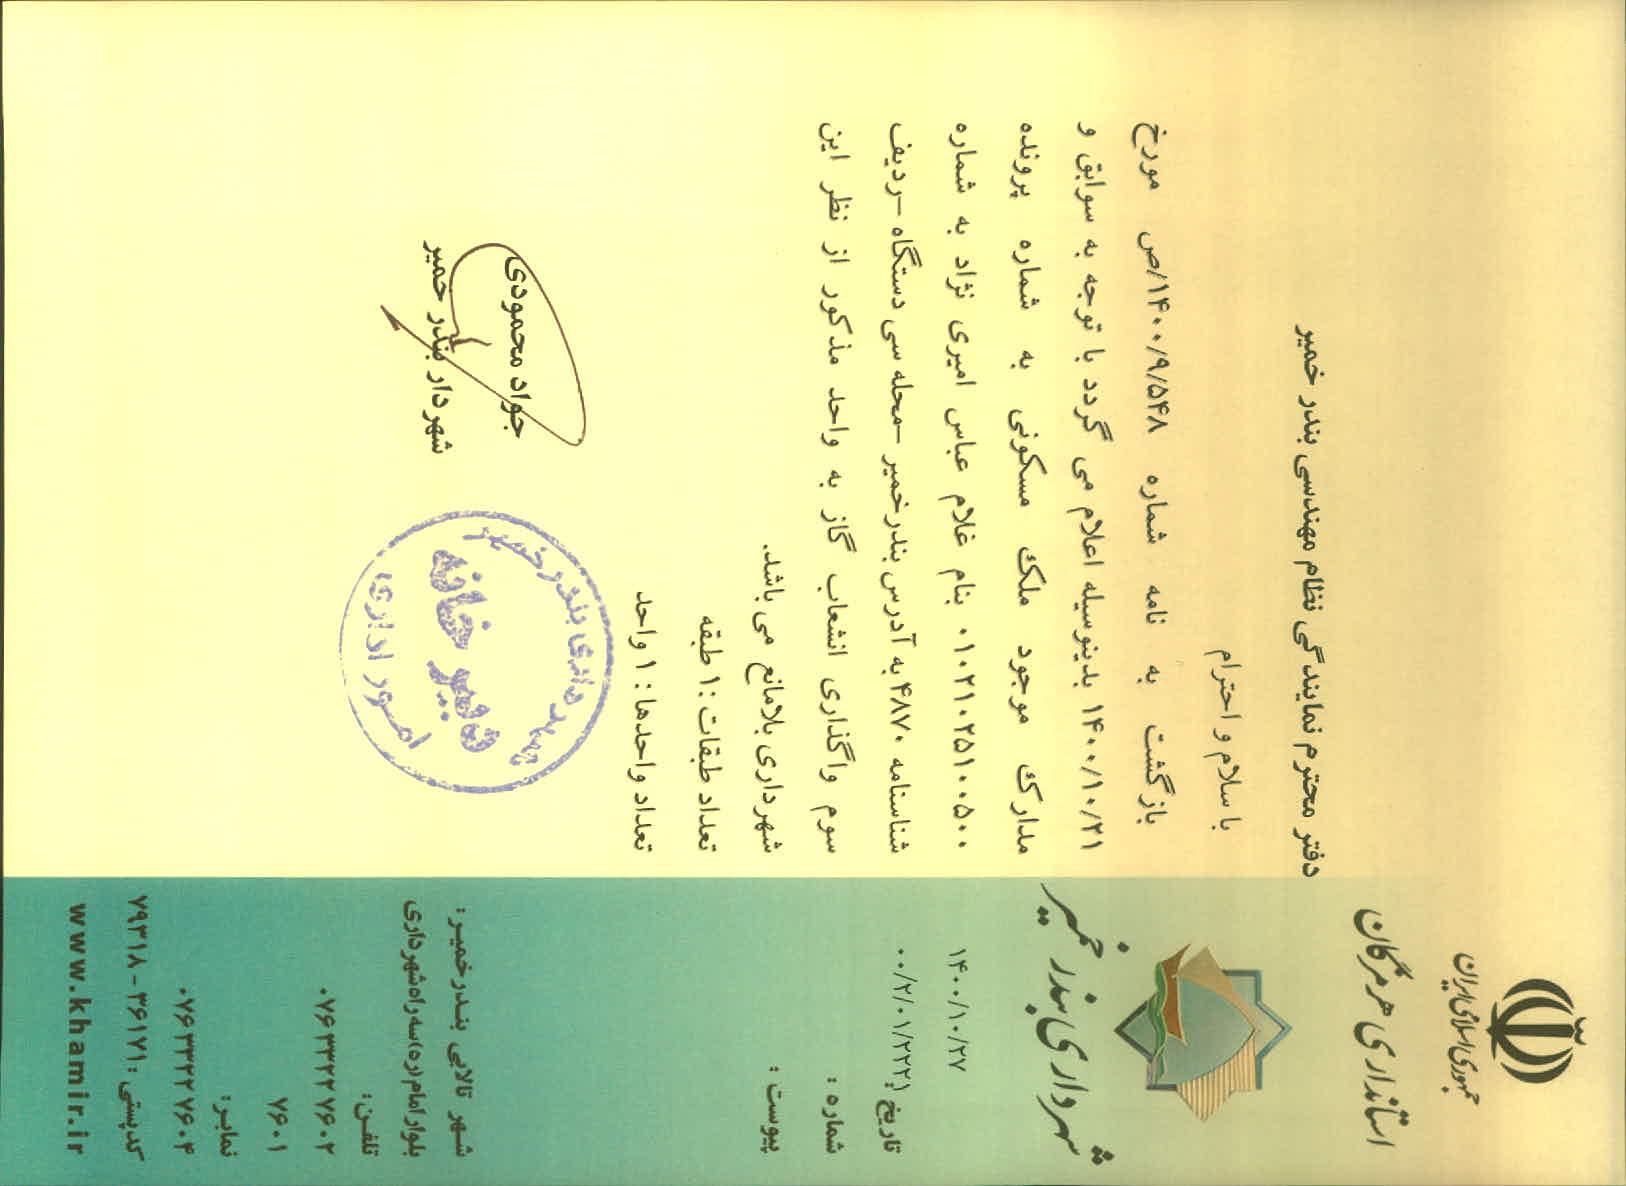 جمهوری اسلامی ایران
استانداری هرمزگان
شهرداری بندر خمیر
۱۴۰۰/۱۰/۲۷
۰۰/۲/۰۱/۲۲۲۱
تاریخ :
شماره :
پیوست :
دفتر محترم نمایندگی نظام مهندسی بندر خمیر
با سلام و احترام
بازگشت به نامه شماره ۱۴۰۰/۹/۵۴۸/ص مورخ
۱۴۰۰/۱۰/۲۱ بدینوسیله اعلام می گردد با توجه به سوابق و
مدارک موجود ملک مسکونی به شماره پرونده
۰۱۰۲۱۰۲۵۱۰۰۵۰۰ بنام غلام عباس امیری نژاد به شماره
شناسنامه ۴۸۷۰ به آدرس بندرخمیر –محله سی دستگاه –ردیف
سوم واگذاری انشعاب گاز به واحد مذکور از نظر این
شهرداری بلامانع می باشد.
تعداد طبقات : ۱ طبقه
تعداد واحدها : ۱ واحد
جواد محمودی
شهردار بندر خمیر
شهرداری بندر خمیر
دبیر خانه
امور اداری
شهر تالابی بندرخمیر:
بلوار امام (ره) سه راه شهرداری
تلفن:
۰۷۶۳۳۲۲۷۶۰۲
۷۶۰۱
نمابر:
۰۷۶۳۳۲۲۷۶۰۴
کدپستی : ۳۶۱۷۱ - ۷۹۳۱۸
www.khamir.ir